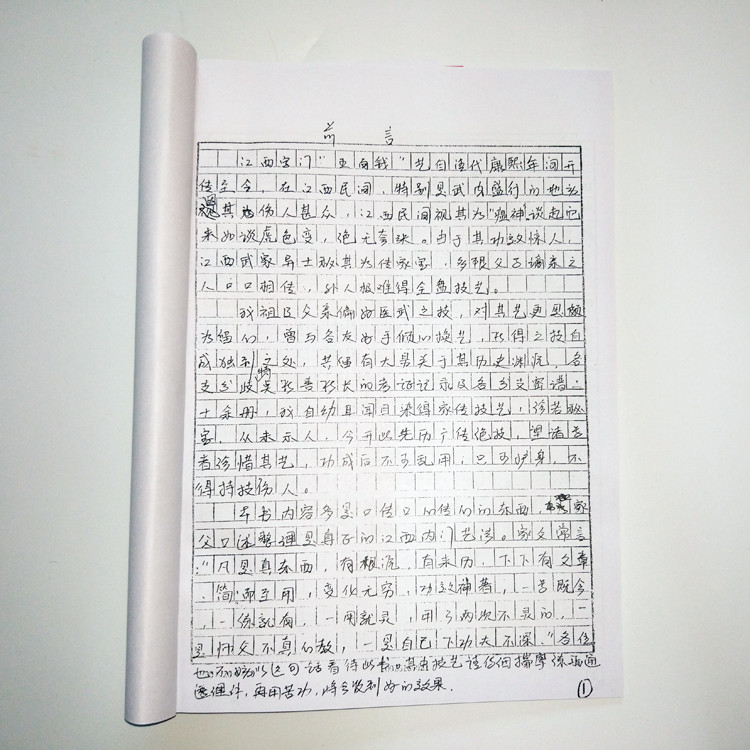 前言
江西字门"五百钱"艺自清代康熙年间开
传至今,在江西民间,特别是武术盛行的地方
因其伤人甚众,江西民间视其为"瘟神"谈起它
来如谈虎色变,绝无夸张。由于其功效惊人,
江西武家异士秘其为传家宝,多限父子嫡亲之
人口口相传,外人极难得全盘技艺。
我祖及父亲偏好医武之技,对其艺更是颇
为,曾与各友好手倾心换艺,所得之技自
成独到之处,其留有大量关于其历史渊源,各
支分歧所善所长的考证记录及各分支密谱
十余册,我自幼耳闻目染得家传技艺,珍若秘
宝,从未示人,今开此先历广传绝技,望诸君
者珍惜其艺,功成后不可乱用,只可护身,不
得持技伤人。
本书内容多是口传口的东西,家
父口述整理是真正的江西内门艺法。家父常言
:"凡是真东西,有根源,有来历,下下有文章
,简单至用,变化无穷,功效神著,一看既会
,一练就有,一用就灵,用了两次不灵的,一
是师父不真心教,一是自己下功夫不深。"各位
也不妨以这句话看待此书技艺认真仔细揣摩练通
透理法,再用苦功,将会收到好的效果。
①